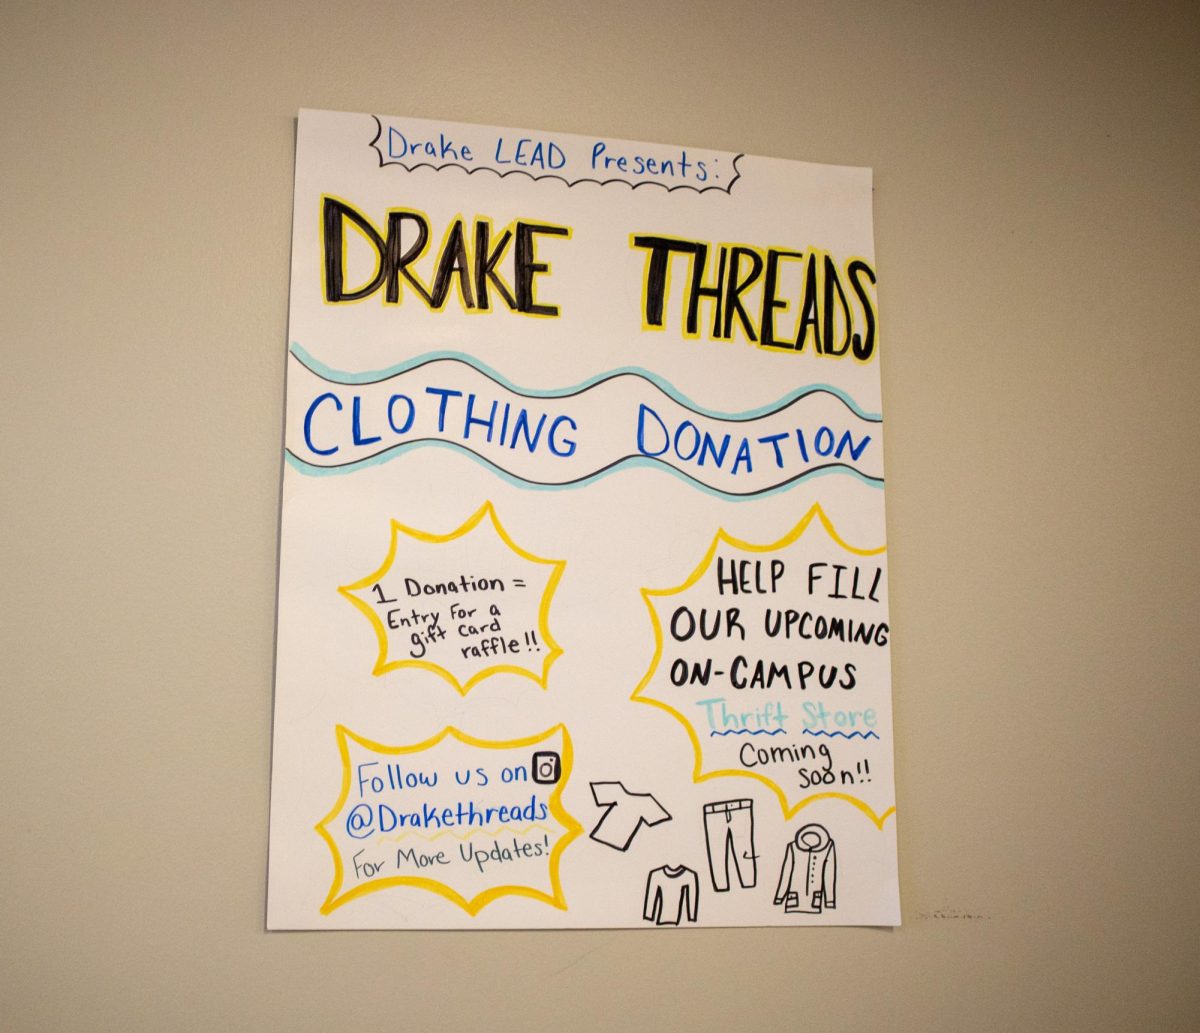 Drake LEAD Presents:
DRAKE THREADS
CLOTHING DONATION
1 Donation =
Entry For a
gift card
raffle!!
HELP FILL
OUR UPCOMING
ON-CAMPUS
Thrift Store
Coming
Soon!!
Follow us on
@Drakethreads
For More Updates!